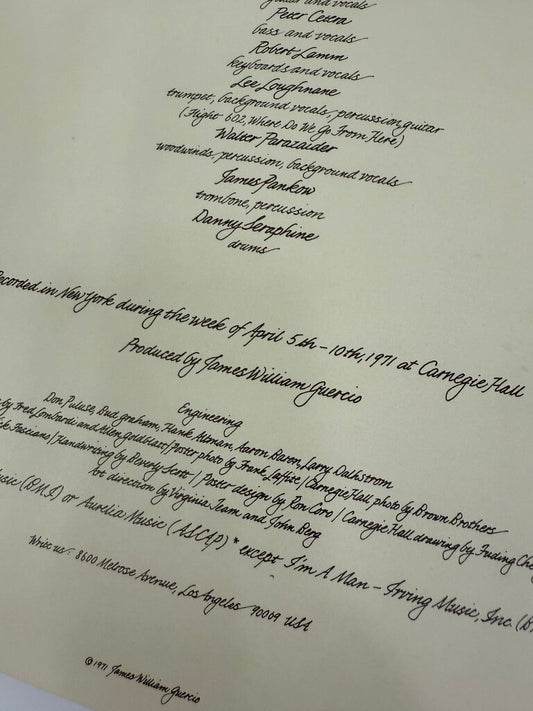 guitar and vocals
Peter Cetera
bass and vocals
Robert Lamm
keyboards and vocals
Lee Loughnane
trumpet, background vocals, percussion, guitar
(Flight 602, Where Do We Go From Here)
Walter Parazaider
woodwinds, percussion, background vocals
James Pankow
trombone, percussion
Danny Seraphine
drums
Recorded in New York during the week of April 5th – 10th, 1971 at Carnegie Hall
Produced by James William Guercio
Engineering
Don Puluse, Bud Graham, Hank Altman, Aaron Baron, Larry Dalhstrom
by Fred Lombardi and Allen Goldblatt / Poster photo by Frank Laffitte / Carnegie Hall photo by Brown Brothers
Nick Fasciano / Handwriting by Beverly Scott / Poster design by Ron Coro / Carnegie Hall drawing by Fuding Che
Art direction by Virginia Team and John Berg
Music (BMI) or Aurelia Music (ASCAP) * except I'm A Man – Irving Music, Inc. (B
Write us: 8600 Melrose Avenue, Los Angeles 90069 USA
© 1971 James William Guercio